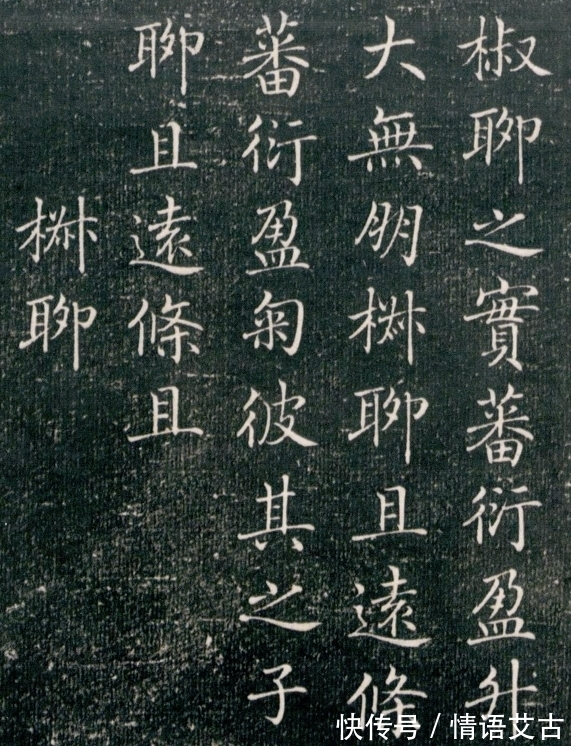 椒聊之實蕃衍盈升
大無朋椒聊且遠條
蕃衍盈匊彼其之子
聊且遠條且
椒聊
快传号 / 情语艾古